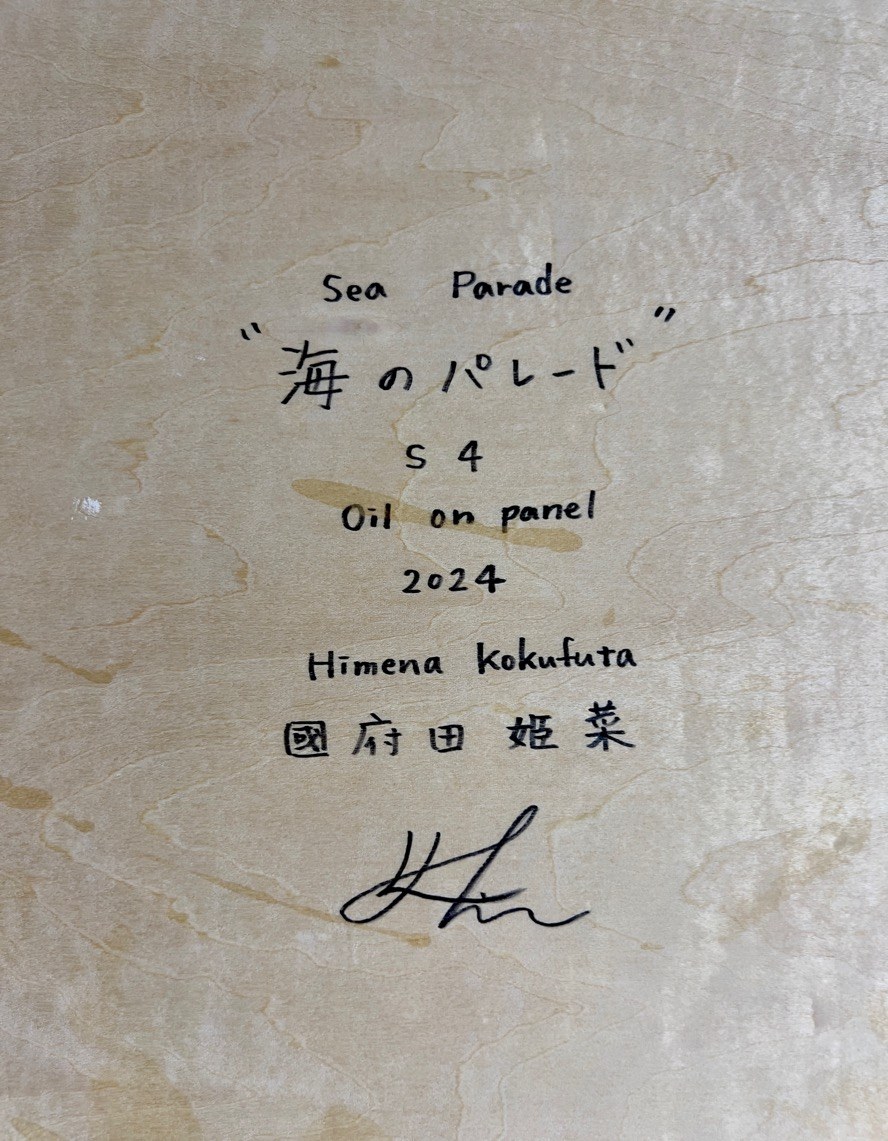 Sea Parade
"海のパレード"
S 4
Oil on panel
2024
Himena Kokufuta
國府田 姫菜